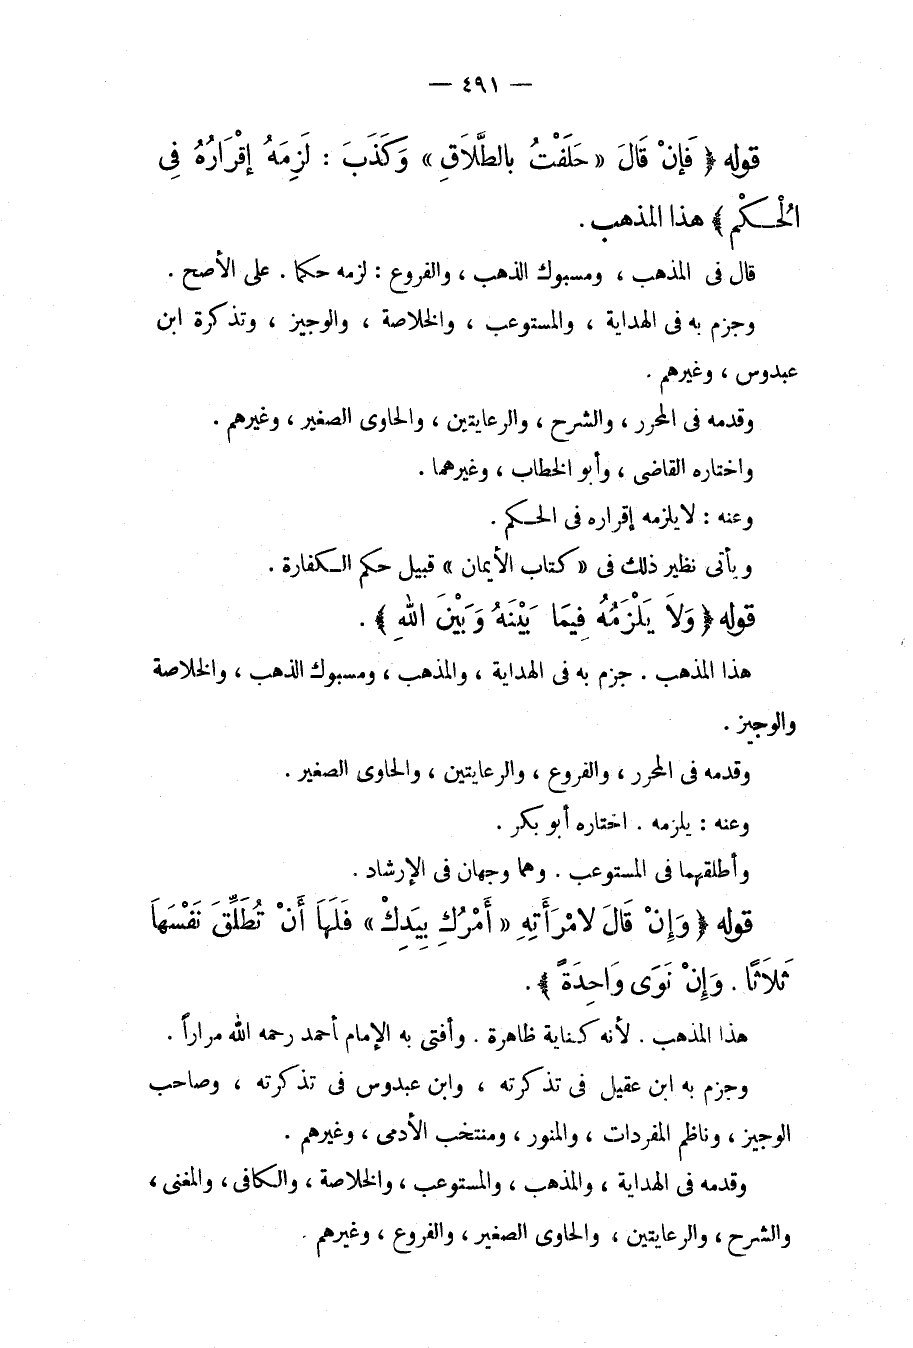 — ٤٩١ —
قوله ﴿ فَإِنْ قَالَ « حَلَفْتُ بِالطَّلَاقِ » وَكَذَبَ : لَزِمَهُ إِقْرَارُهُ فِى
الْحُكْمِ ﴾ هذا المذهب .
قال فى المذهب ، ومسبوك الذهب ، والفروع : لزمه حكما . على الأصح .
وجزم به فى الهداية ، والمستوعب ، والخلاصة ، والوجيز ، وتذكرة ابن
عبدوس ، وغيرهم .
وقدمه فى المحرر ، والشرح ، والرعايتين ، والحاوى الصغير ، وغيرهم .
واختاره القاضى ، وأبو الخطاب ، وغيرهما .
وعنه : لا يلزمه إقراره فى الحكم .
ويأتى نظير ذلك فى « كتاب الأيمان » قبيل حكم الكفارة .
قوله ﴿ وَلَا يَلْزَمُهُ فِيمَا بَيْنَهُ وَبَيْنَ اللهِ ﴾ .
هذا المذهب . جزم به فى الهداية ، والمذهب ، ومسبوك الذهب ، والخلاصة
والوجيز .
وقدمه فى المحرر ، والفروع ، والرعايتين ، والحاوى الصغير .
وعنه : يلزمه . اختاره أبو بكر .
وأطلقهما فى المستوعب . وهما وجهان فى الإرشاد .
قوله ﴿ وَإِنْ قَالَ لامْرَأَتِهِ « أَمْرُكِ بِيَدِكِ » فَلَهَا أَنْ تُطَلِّقَ نَفْسَهَا
ثَلَاثًا . وَإِنْ نَوَى وَاحِدَةً ﴾ .
هذا المذهب . لأنه كناية ظاهرة . وأفتى به الإمام أحمد رحمه الله مراراً .
وجزم به ابن عقيل فى تذكرته ، وابن عبدوس فى تذكرته ، وصاحب
الوجيز ، وناظم المفردات ، والمنور ، ومنتخب الأدمى ، وغيرهم .
وقدمه فى الهداية ، والمذهب ، والمستوعب ، والخلاصة ، والكافى ، والمغنى ،
والشرح ، والرعايتين ، والحاوى الصغير ، والفروع ، وغيرهم .